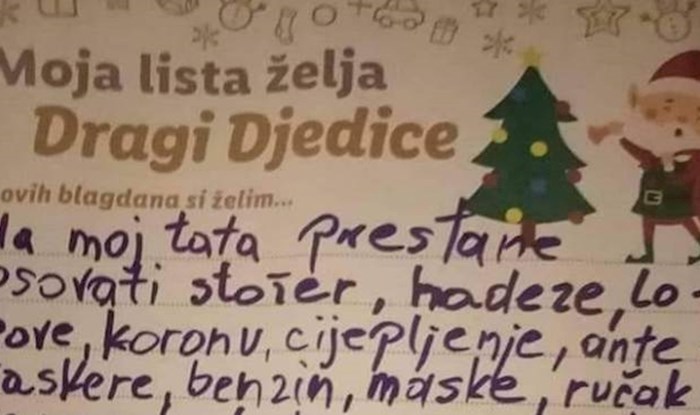 Moja lista želja
Dragi Djedice
ovih blagdana si želim...
da moj tata prestane
psovati stožer, hadeze, lo-
pove, koronu, cijepljenje, ante
maskere, benzin, maske, ručak